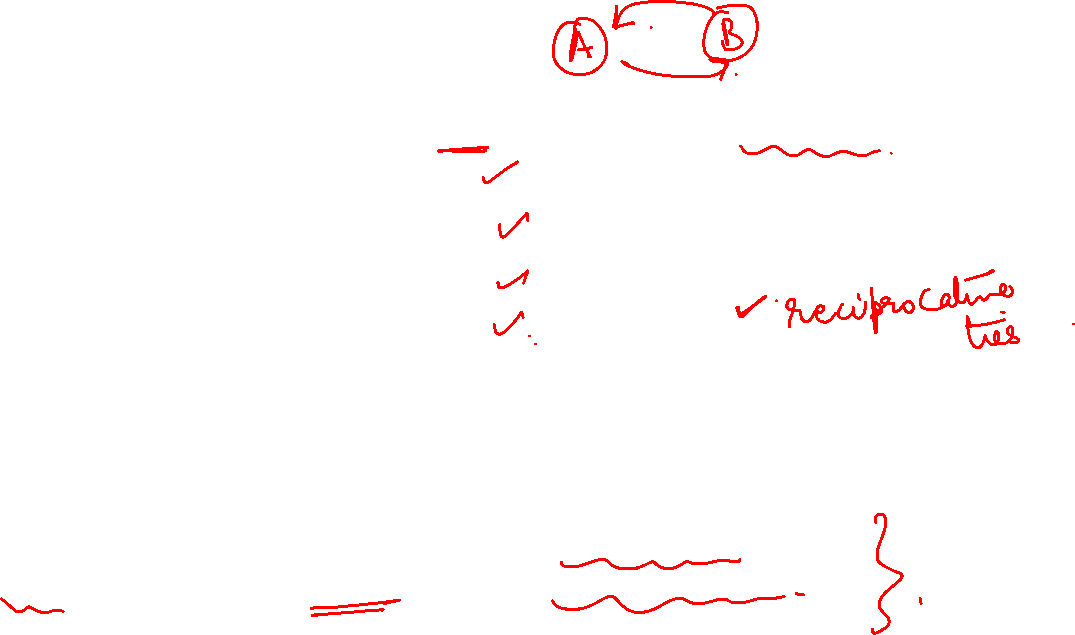 A B
reciprocating
ties